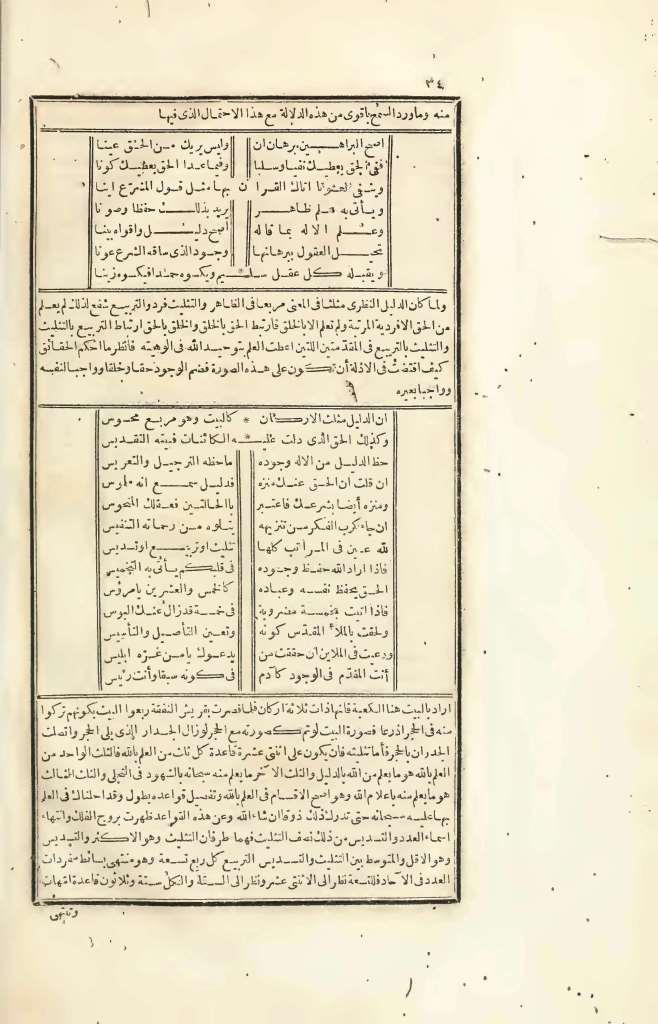 ٣٤
منه وما ورد السمع بأقوى من هذه الدلالة مع هذا الاحتمال الذى فيها
اصح البراهين برهان ان وليس يريك من الحق عينا
ففى الحق يعطيك نفيا وسلبا وفيما عدا الحق يعطيك كونا
القرآن بها مثل قول المشرع اينا
ويأتى به ظاهر يريد بذلك حفظا وصونا
وعلم الاله بما قاله أصح دليل وأقواه بينا
تحيل العقول ببرهانها وجود الذى ساقه الشرع عونا
ويقبله كل عقل سليم ويكسوه
ولما كان الدليل النظرى مثلثا فى المعنى مربعا فى الظاهر والتثليث فرد والتربيع شفع لذلك لم يعلم
من الحق الا فردية المرتبة ولم تعلم الا بالخلق فارتبط الحق بالخلق والخلق بالحق ارتباط التربيع بالتثليث
والتثليث بالتربيع فى المقدمتين اللتين اعطت العلم بتوحيد الله فى الوهيته فانظر ما احكم الحقائق
كيف اقتضت فى الادلة أن تكون على هذه الصورة فضم الوجود حقا وخلقا وواجبا لنفسه
وواجبا بغيره
ان الدليل مثلث الاركان * كالبيت وهو مربع محسوس
وكذلك الحق الذى دلت عليه * الكائنات فبيته التقديس
حظ الدليل من الاله وجوده ما حظه الترحيل والتعريس
ان قلت ان الحق عندك منزه فدليل سمع انه ملموس
ومنزه أيضا بشرعك فاعتبر بالحالتين فعقلك المنحوس
ان جاء كرب الفكر من تنزيهه يتلوه من رحماته التنفيس
لله عين فى المراتب كلها تثليث او تربيع او تسديس
فاذا اراد الله حفظ وجوده فى قلبكم يأتى به التخميس
الحق يحفظ نفسه وعباده كالخمس والعشرين يا مرؤس
فاذا أتيت بخمسة مضروبة فى خمسة قد زال عنك البوس
ولحقت بالملأ المقدس كونه وتعين التأصيل والتأسيس
ودعيت فى الملاين ان حققت من يدعوك يا من غره ابليس
أنت المقدم فى الوجود كآدم فى كونه سبقا وأنت رئيس
اراد بالبيت هنا الكعبة فانها ذات ثلاثة اركان فلما قصرت بقريش النفقة ربعوا البيت بكونهم تركوا
منه فى الحجر اذرعا فصورة البيت لو تم كصورته مع الحجر لو زال الجدار الذى يلى الحجر واتصلت
الجدران بالحجر فأما تثليثه فان يكون على اثنتى عشرة قاعدة كل ثلث من العلم بالله فالثلث الواحد من
العلم بالله هو ما يعلم من الله بالدليل والثلث الآخر ما يعلم منه سبحانه بالشهود فى التجلى والثلث الثالث
هو ما يعلم منه باعلام الله وهو اصح الاقسام فى العلم بالله وتفصيل قواعده يطول وقد احلناك فى العلم
بها عليه سبحانه حتى تدرك ذلك ذوقا ان شاء الله وعن هذه القواعد ظهرت بروج الفلك وانتهاء
اسماء العدد والتسديس من ذلك نصف التثليث فهما طرفان التثليث وهو الاكثر والتسديس
وهو الاقل والمتوسط بين التثليث والتسديس التربيع كل ربع تسعة وهو منتهى بسائط مفردات
العدد فى الآحاد فللتسعة نظر الى الاثنتى عشر ونظر الى الستة والكل ستة وثلاثون قاعدة امهات
وتنتهى